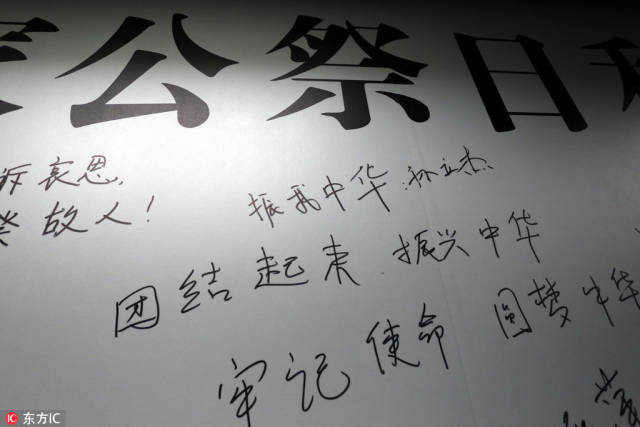 公祭日
哀思,
故人!
振我中华 孙立杰
团结起来 振兴中华
牢记使命 圆梦中华
IC 东方IC